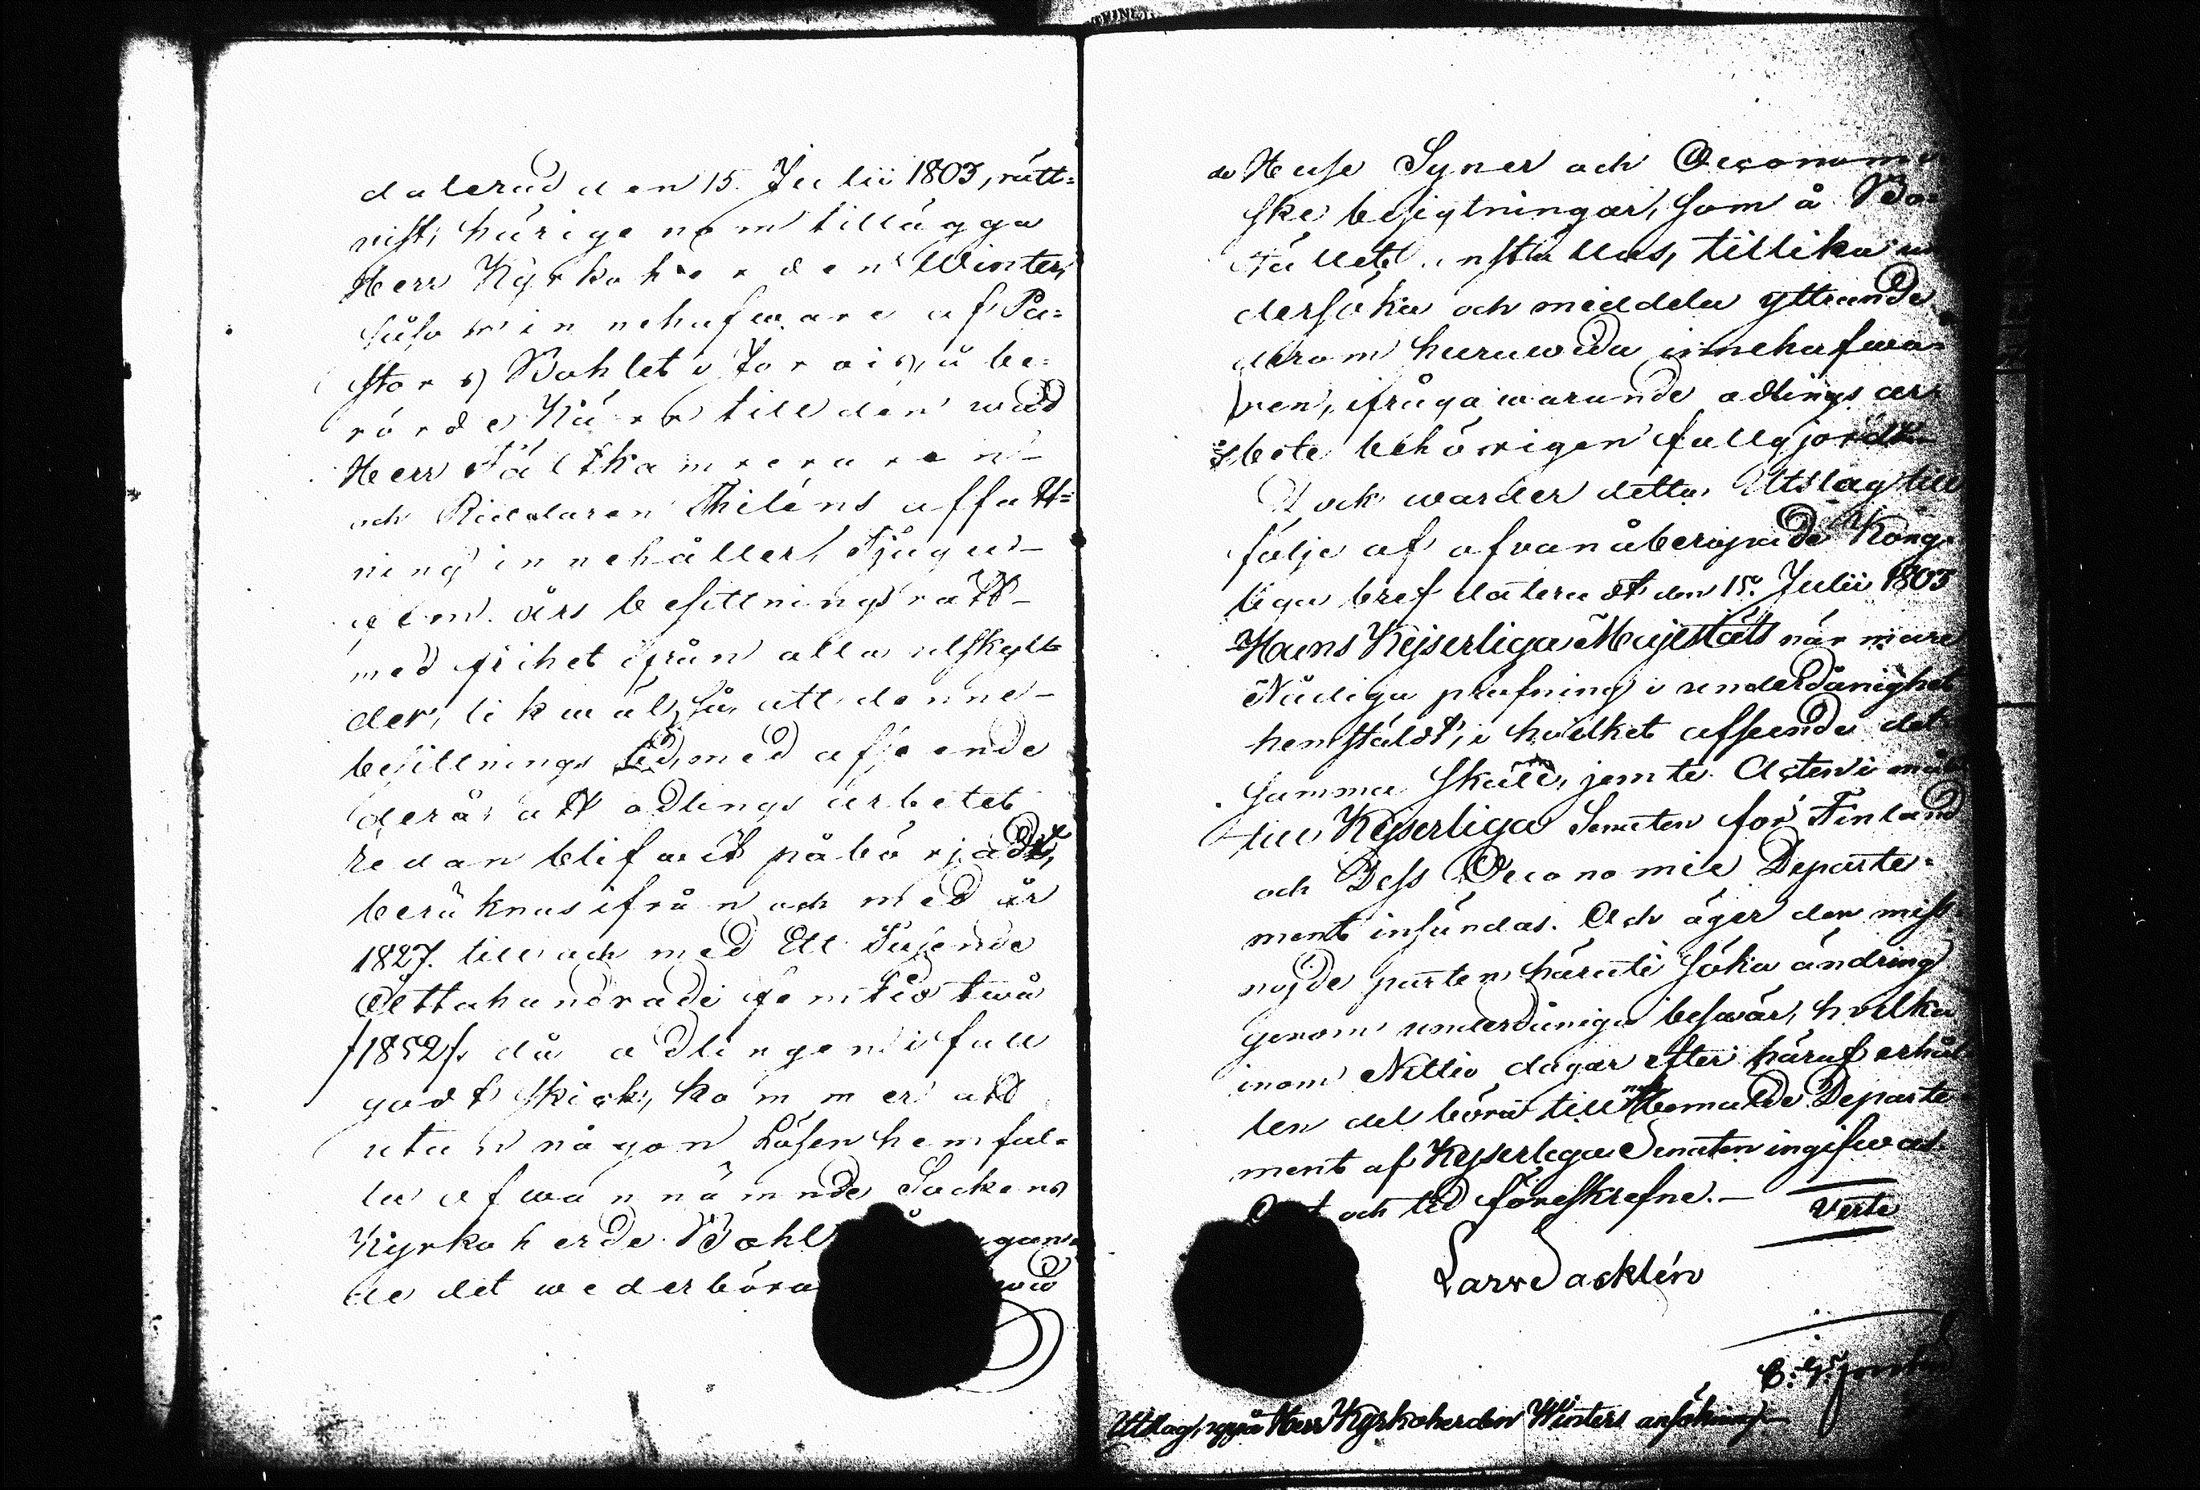 daterad den 15. Julii 1803, rätt-
vist, härigenom tillägga
Herr Kyrkoherden Winter,
såsom innehafware af Pa-
stors Bohlet i Jorois, å be-
rörde Kärr till den wid
Herr Fältkamreraren
och Riddaren Thiléns affatt-
ning innehåller, Tjugu-
fem års besittningsrätt
med frihet ifrån alla utskyl-
der, likwäl så, att denne
besittnings tid, med afseende
derå, att odlings arbetet
redan blifwit påbörjadt,
beräknas ifrån och med år
1827. till och med Ett Tusende
Åttahundrade femtio twå
/1852/. då odlingen i full
godt skick, kommer att
utan någon Lösen hemfal-
la ofwannämnde Sockens
Kyrkoherde Bohl
de det wederböra wid
de Huse Syner och Oeconomi
ske besigtningar, som å Bo-
stället anställas, tillika un
dersöka och meddela yttrande
derom huruwida innehafwa-
ren, ifrågawarande odlings ar-
bete behörigen fullgjordt
Dock warder detta Utslag till
följe af ofvanåberopade Kong-
liga bref dateradt den 15. Julii 1803
Hans Kejserliga Majestäts närmare
Nådiga pröfning i underdånighet
hemstäldt, i hvilket afseende det
samma skall, jemte Acten i målet
till Kejserliga Senaten för Finland
och Dess Oeconomie Departe-
ment insändas. Och äger den miss-
nöjde parten häruti söka ändring
genom underdåniga beswär, hvilka
inom Nittio dagar efter häraf erhål-
len del böra till wälbemälde Departe-
ment af Kejserliga Senaten ingifwas.
Ort och tid föreskrefne.—
Verte
Lars Sacklén
Utslag, uppå Herr Kyrkoherden Winters ansökning